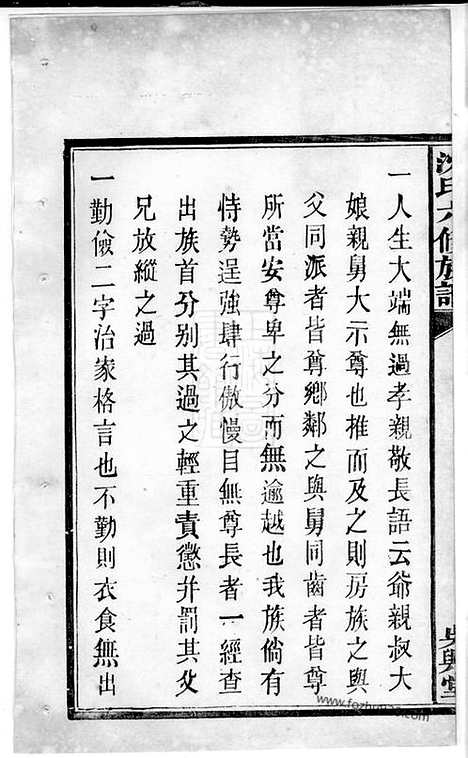 沈氏六修族譜
吳興堂
一人生大端無過孝親敬長語云爺親叔大
娘親舅大示尊也推而及之則房族之與
父同派者皆尊鄉鄰之與舅同齒者皆尊
所當安尊卑之分而無逾越也我族倘有
恃勢逞強肆行傲慢目無尊長者一經查
出族首分别其過之輕重責懲并罰其父
兄放縱之過
一勤儉二字治家格言也不勤則衣食無出